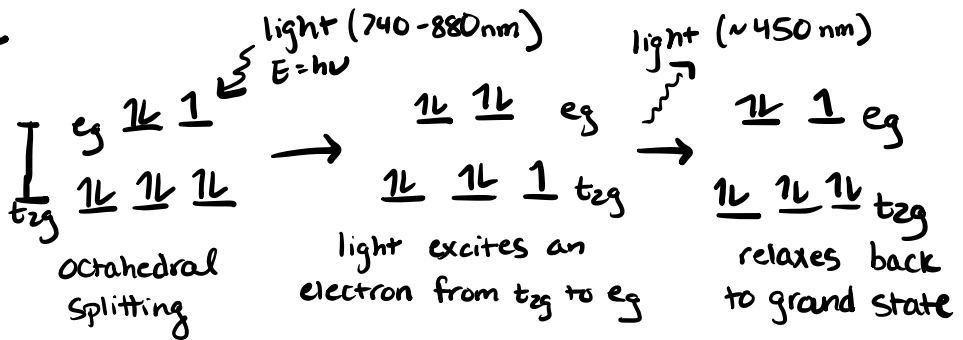 light (740-880nm)
E=hν
light (~450 nm)
eg 1L 1
t2g 1L 1L 1L
octahedral
splitting
1L 1L eg
1L 1L 1 t2g
light excites an
electron from t2g to eg
1L 1 eg
1L 1L 1L t2g
relaxes back
to ground state